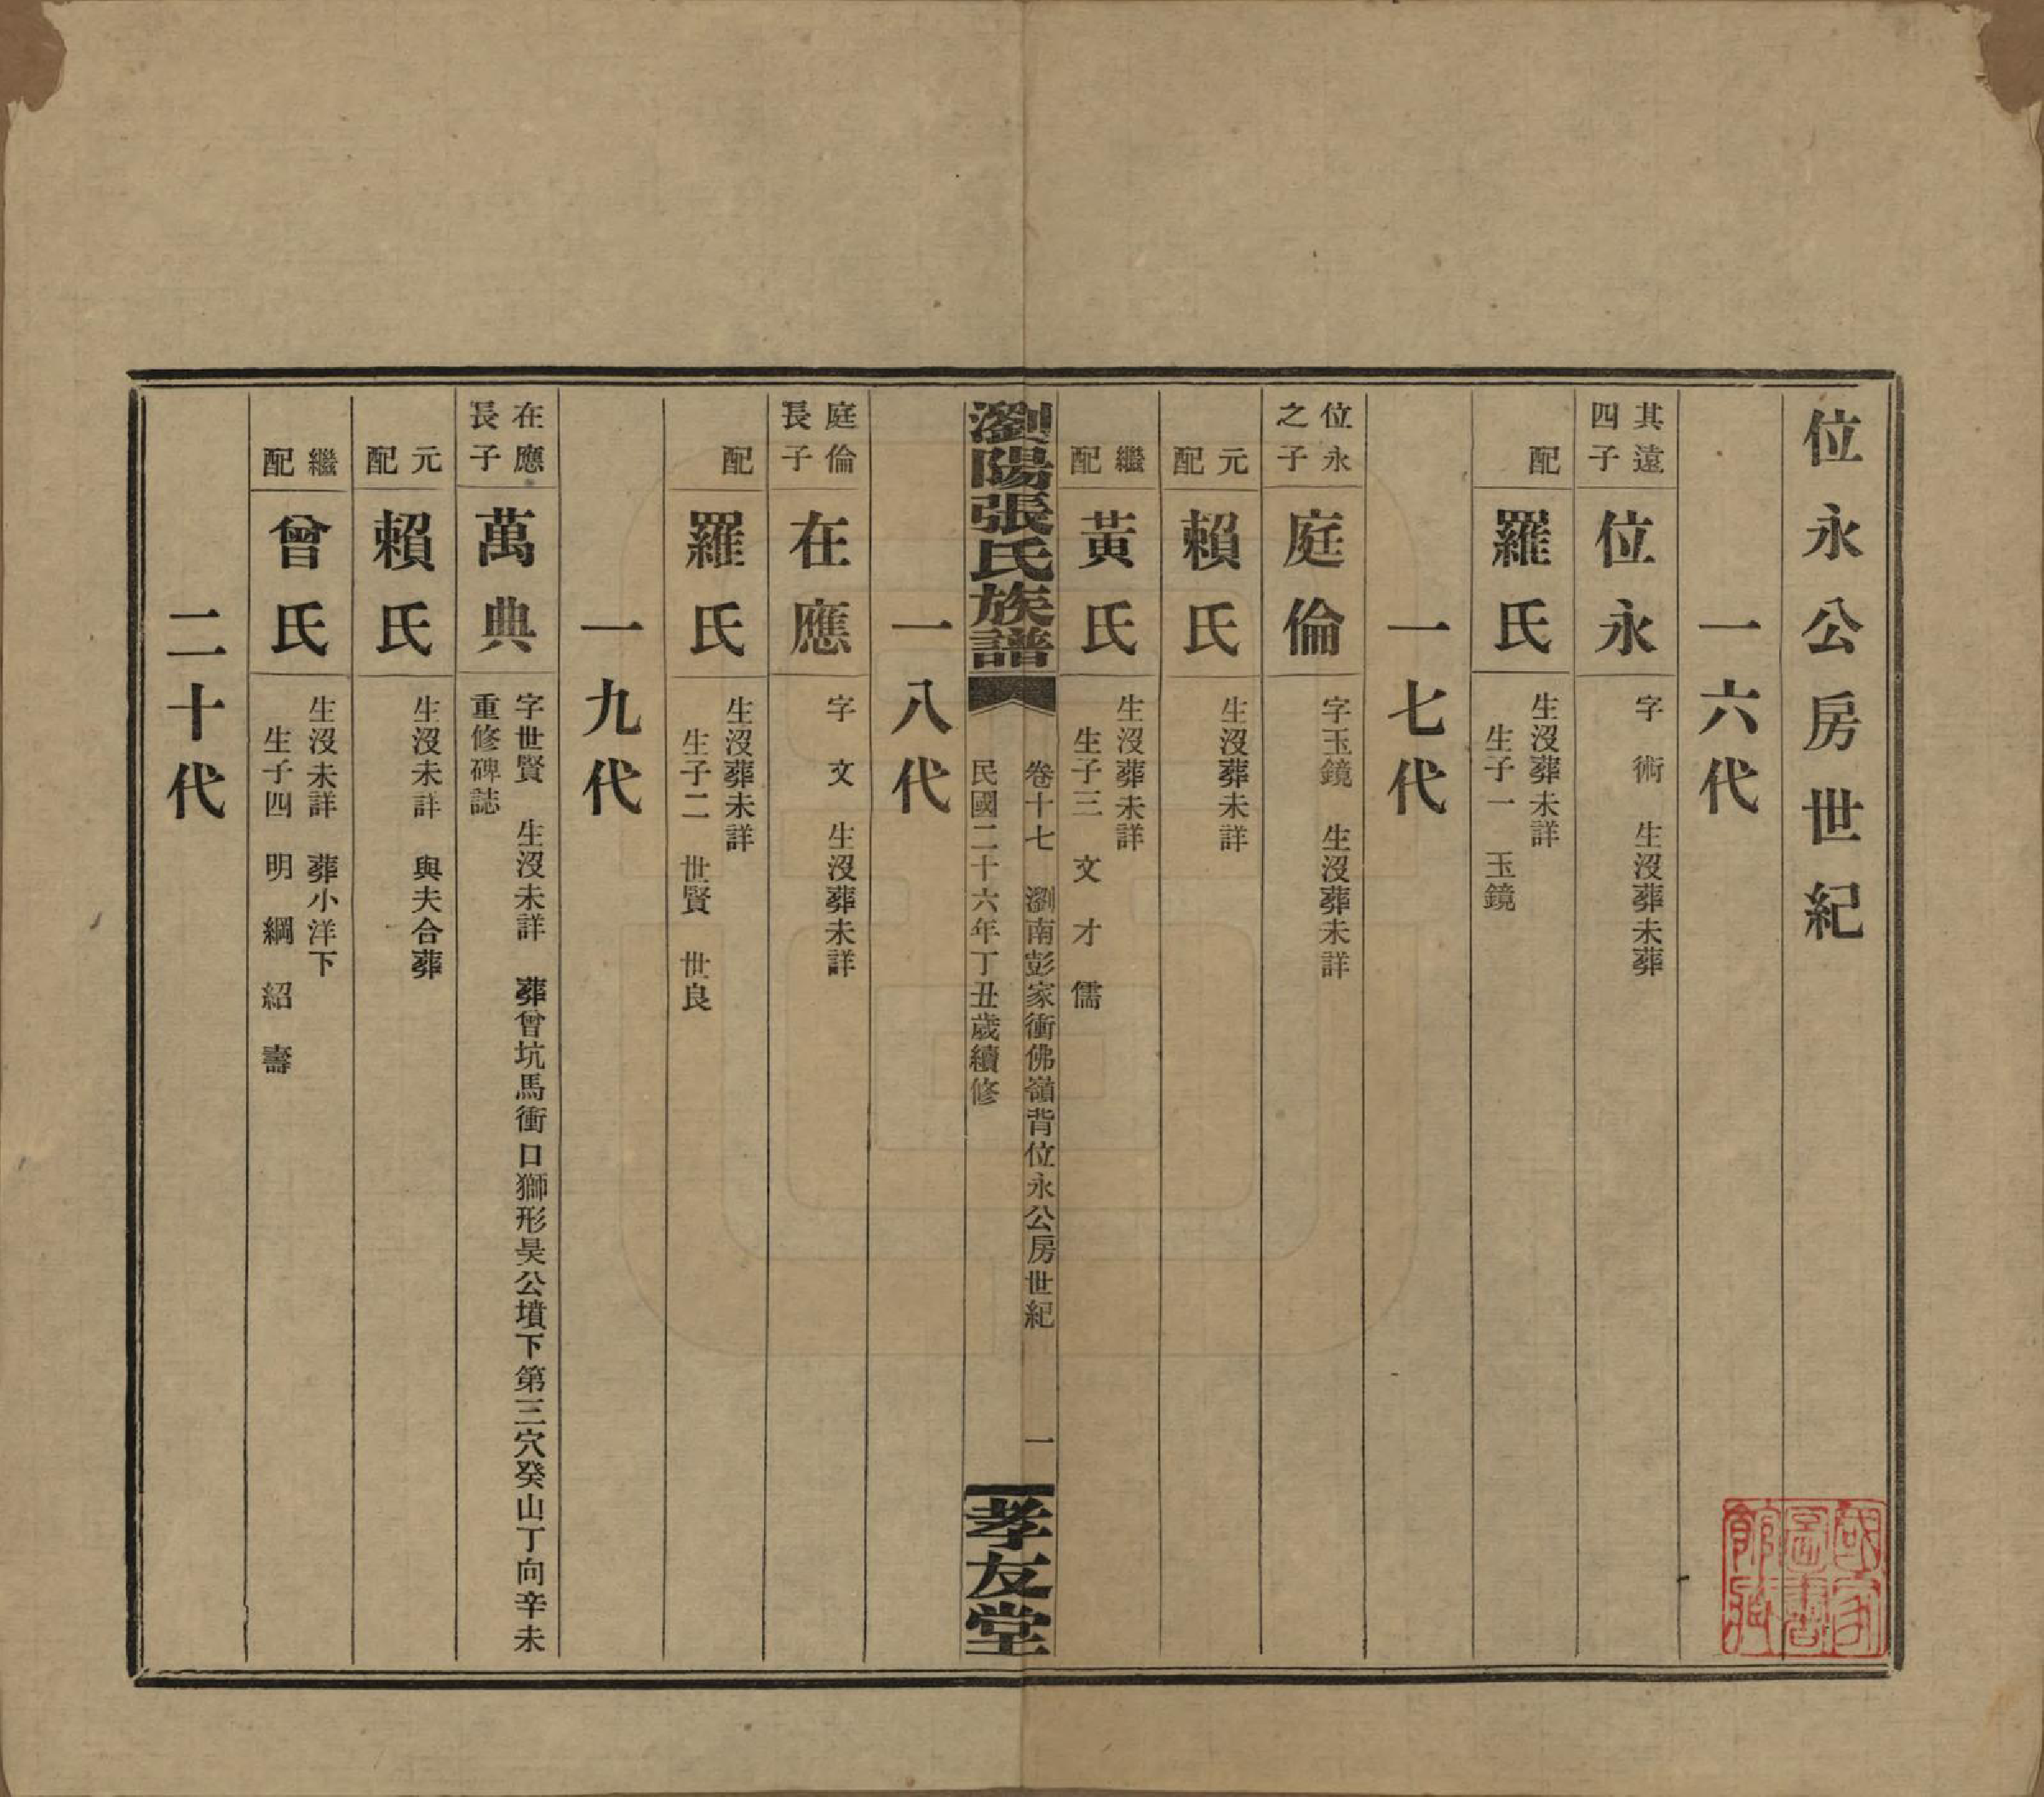 位永公房世紀
一六代
其遠四子
位永
字術 生沒葬未葬
配
羅氏
生沒葬未詳
生子一 玉鏡
一七代
位永之子
庭倫
字玉鏡 生沒葬未詳
元配
賴氏
生沒葬未詳
繼配
黃氏
生沒葬未詳
生子三 文 才 儒
瀏陽張氏族譜
卷十七 瀏南彭家衝佛嶺背位永公房世紀 一
民國二十六年丁丑歲續修
孝友堂
一八代
庭倫長子
在應
字文 生沒葬未詳
配
羅氏
生沒葬未詳
生子二 世賢 世良
一九代
在應長子
萬典
字世賢 生沒未詳 葬曾坑馬衝口獅形昊公墳下第三穴癸山丁向辛未
重修碑誌
元配
賴氏
生沒未詳 與夫合葬
繼配
曾氏
生沒未詳 葬小洋下
生子四 明 綱 紹 壽
二十代
國家圖書館藏